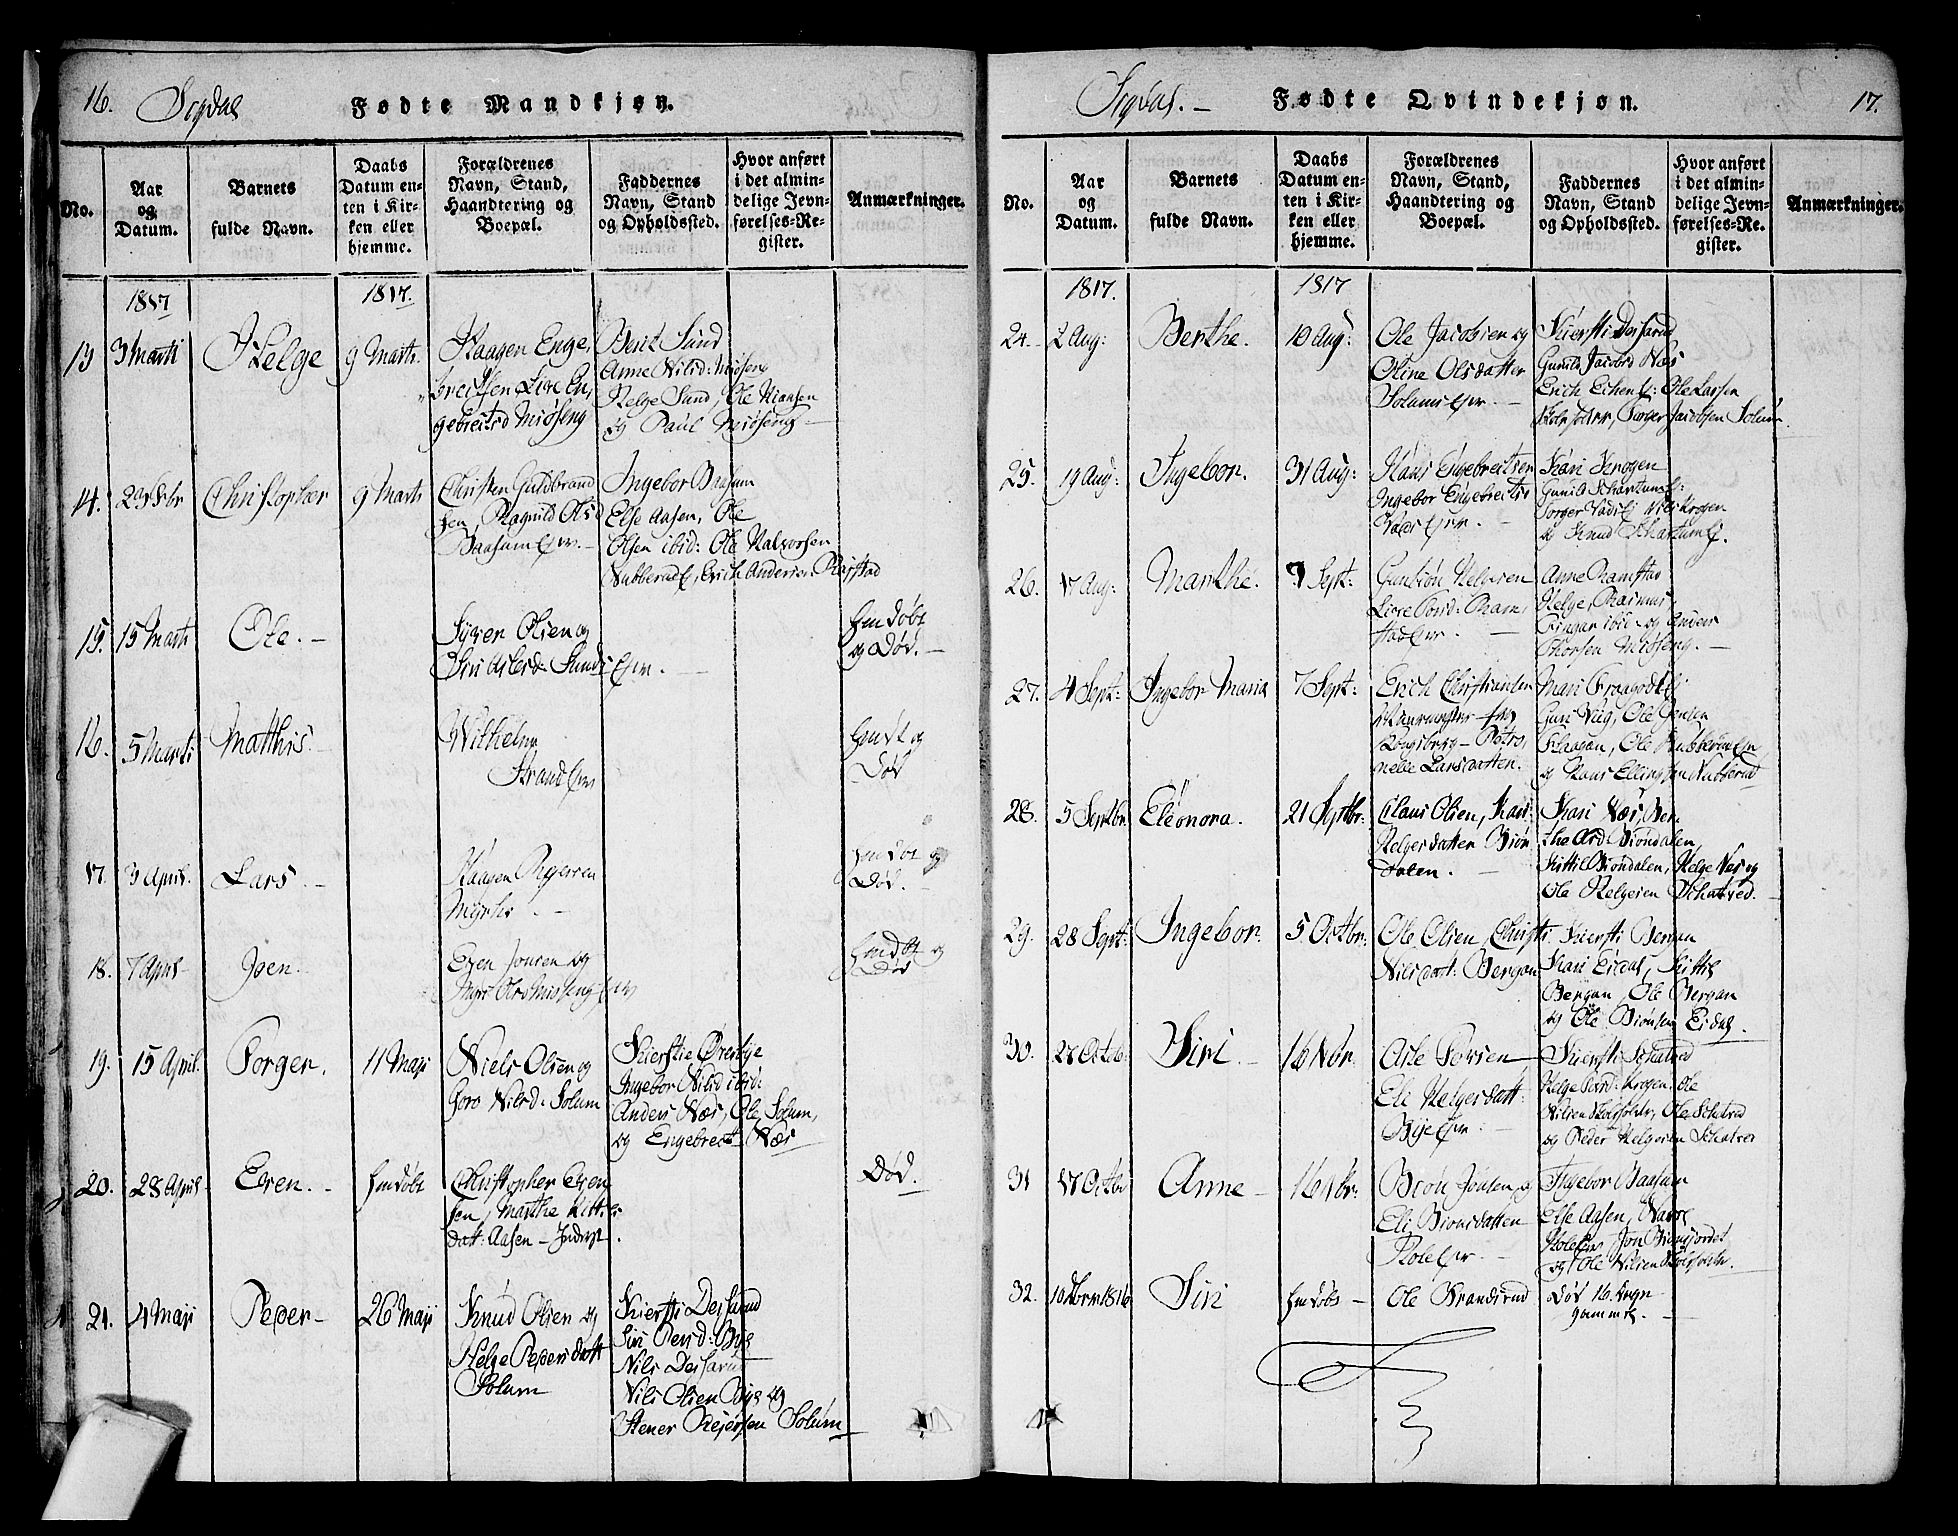 16.
Sigdal
Fødte Mandkjøn.
No.
Aar
og
Datum.
Barnets
fulde Navn.
Daabs
Datum en-
ten i Kir-
ken eller
hjemme.
Forældrenes
Navn, Stand,
Haandtering og
Boepæl.
Faddernes
Navn, Stand
og Opholdssted.
Hvor anført
i det almin-
delige Jevn-
førelses-Re-
gister.
Anmærkninger.
1817
1817.
13
3 Marti
Helge
9 Marts
Haagen Enge,
breitsen Live En,
gebreitsd Miøseng
Berit Sund
Anne Nilsd: Miøseng
Helge Sund, Ole Hansen
og Paul Miøseng
14.
23 Febr
Christopher
9 Marts
Christen Guldbrand
sen, Ragnild Olsd
Baasum Ejer.
Ingebor Baasum
Else Aasen, Ole
Olsen ibid: Ole Halvorsen
Nubberud, Erich Anders:
15.
15 Marts
Ole.
Syver Olsen og
Siri Aslesd: Sunds Ejer.
Hmdøbt
og Død.
16.
5 Marti
Matthis.
Wilhelm
Strand
Hmdt og
Død
17.
3 April.
Lars.
Haagen
Myrhs
Hmdøbt og
Død.
18.
7 April
Joen.
Even Jonsen og
Hmdøbt og
Død
19.
15 April.
Torger.
11 Maji
Niels Olsen og
Goro Nilsd: Solum
Kierstie Ørenbye
Ingebor Nilsd ibid:
Anders Næs, Ole Solum,
og Engebrecht Næs
20.
28 April
Even.
Hmdøbt
Christopher Even,
sen, Marthe Kittils
datt: Aasen - Inderst.
Død.
21.
4 Maji
Peder
26 Maji
Knud Olsen og
Helge Pedersdatt
Solum
Kiersti Desserud
Siri Persd: Bye
Nils Desserud
Nils Olsen Bye og
Stener Reiersen Solum
Sigdal.
Fødte Qvindekjøn.
17.
No.
Aar
og
Datum.
Barnets
fulde Navn.
Daabs
Datum en-
ten i Kir-
ken eller
hjemme.
Forældrenes
Navn, Stand,
Haandtering og
Boepæl.
Faddernes
Navn, Stand
og Opholdssted.
Hvor anført
i det almin-
delige Jevn-
førelses-Re-
gister.
Anmærkninger.
1817.
1817
24.
2 Aug:
Berthe.
10 Aug:
Ole Jacobsen og
Oline Olsdatter
Solums Ejer.
Kiersti Desserud
Gunild Jacobsd Næs
Erich Echern Ej: Ole Larsen
Torger Jacobsen Solum
25.
19 Aug:
Ingebor.
31 Aug:
Hans Engebreitsen
Ingebor Engebreitsd
Kari Krogen
Gunild Schartum Ej:
Torger Nils Krogen
og Knud Schartum Ej.
26.
17 Aug:
Marthe.
7 Sept:
Gunbiøn Helgesen
Live Torsd: Ram,
stad Ejer.
Anne Ramstad
Helge, Rasmus,
Ringar ibid og Anders
Thorsen Miøseng.
27.
4 Sept:
Ingebor Maria
7 Sept:
Erich Christiansen
Muurmester fra
Kongsberg - Petro,
nelle Larsdatter.
Mari Fraagodt Ej
Guri Vüg, Ole Jensen
Haagan, Ole
og Hans Ellingsen Nubberud
28.
5 Septbr
Eleonora.
21 Septbr:
Claus Olsen, Kari
Helgesdatter Biøn
dalen.
Kari Næs, Ber
the Ard Biøndalen
Kittil Biøndalen, Helge Næs og
Ole Helgesen Schatved.
29.
28 Sept:
Ingebor.
5 Octbr:
Ole Olsen, Christi
Nilsdatt: Bergan
Kiersti Bergan
Kari Eidal, Kittil
Bergan, Ole Bergan
og Ole Biønsen Eidal.
30.
27 Octob:
Siri.
16 Nbr:
Asle Torsen
Eli Helgesdatt:
Bye Ejer.
Kiersti Schatved
Helge Torsd: Krogen, Ole
Nilsen Ole Schatved
og Peder Helgesen Schatved
31
17 Octbr
Anne
16 Nbr:
Biøn Jonsen, og
Eli Biønsdatter
Hole Ejer.
Ingebor Baasum
Else Aasen, Narve
Hole Ejer Jon Biønsjordet
og Ole Nilsen
32.
10 Novm 1816
Siri
Hmdøbt
Ole Brandsrud
Død 16 Uger
gammel.